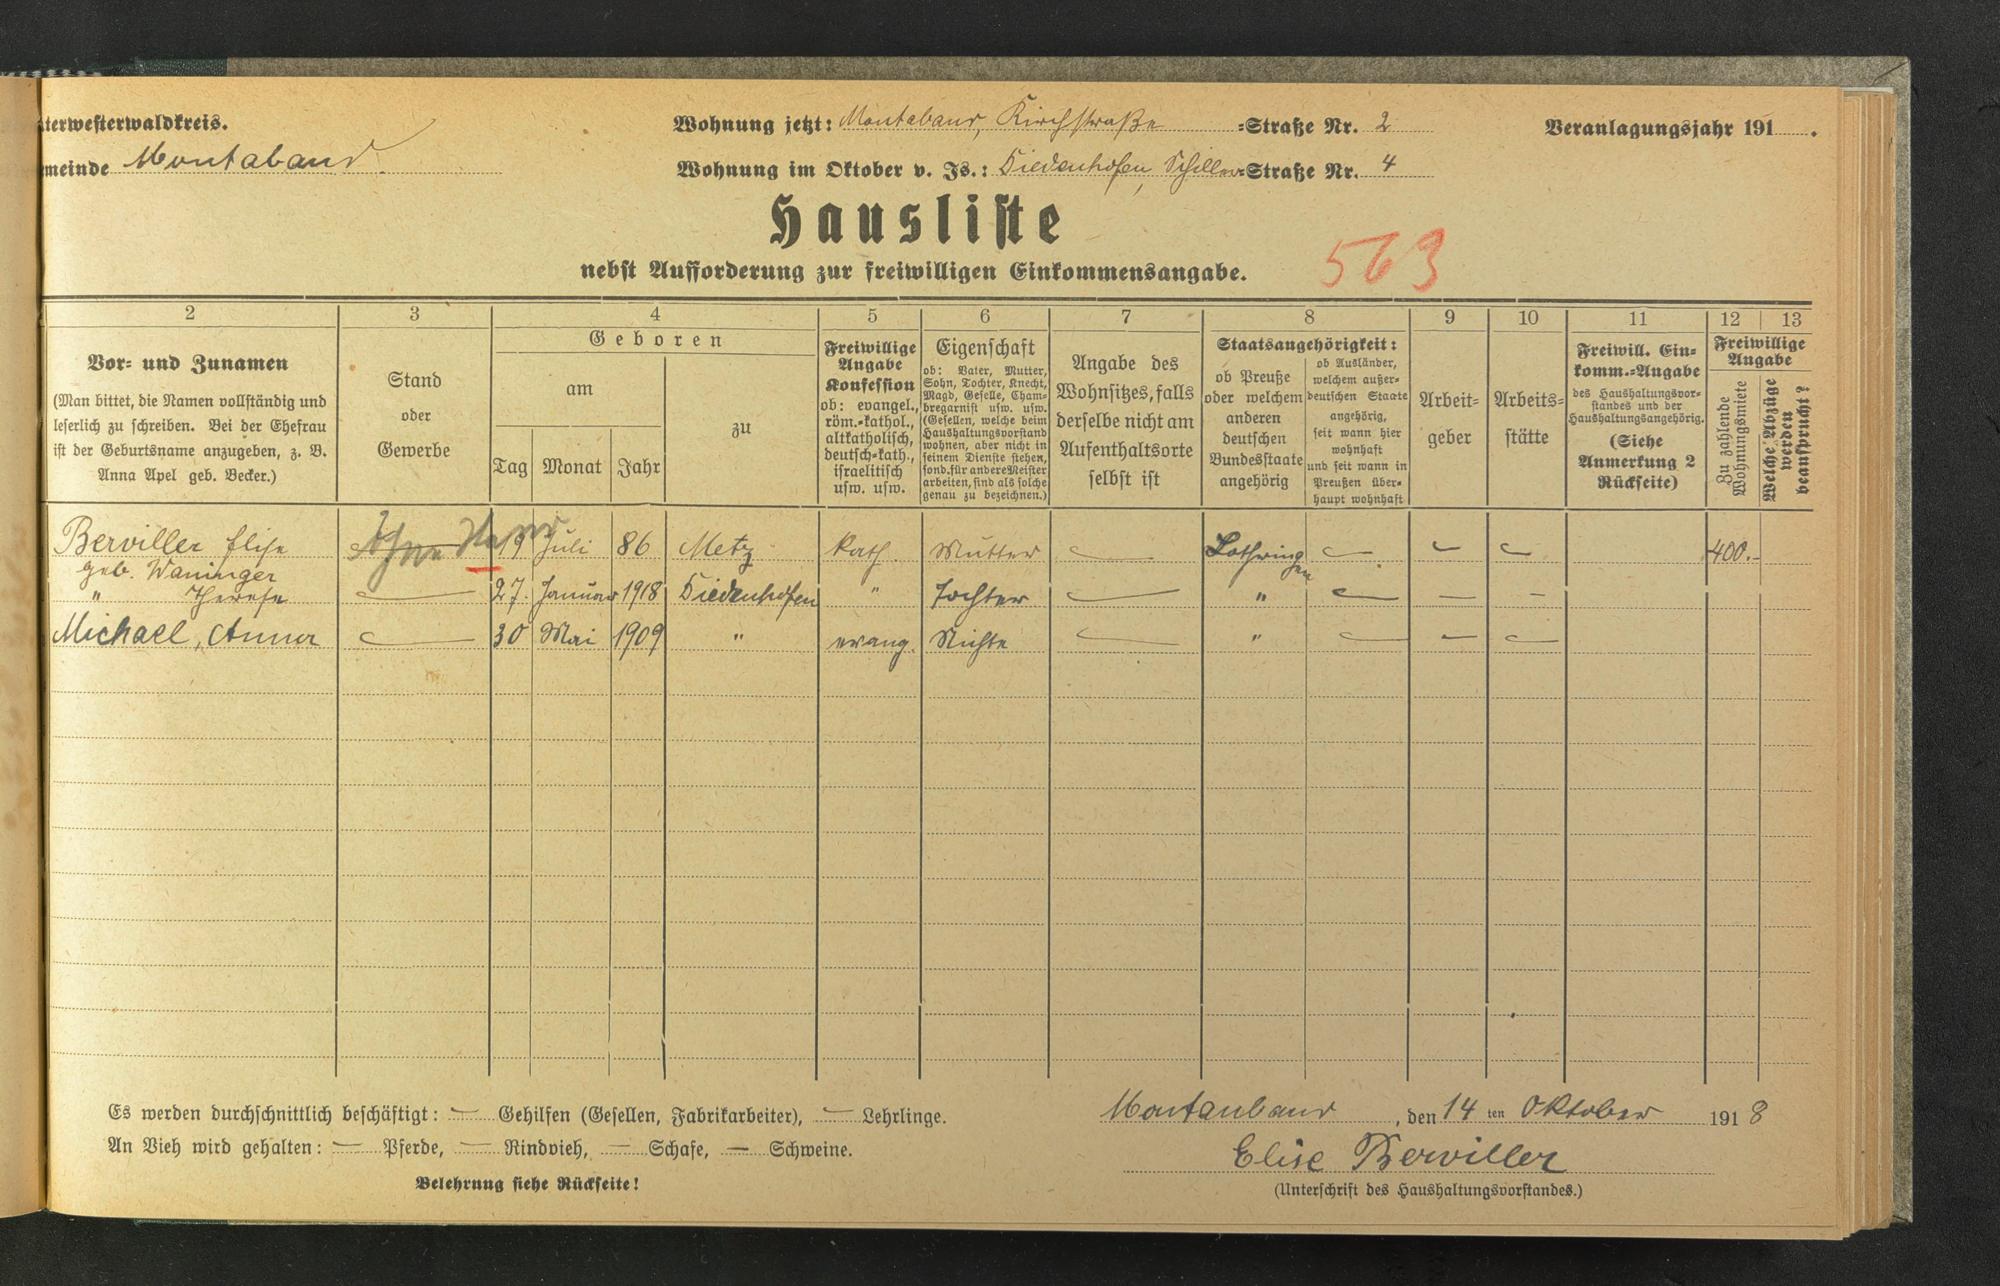 terwesterwaldkreis.
meinde Montabaur
Wohnung jetzt: Montabaur, Kirchstraße =Straße Nr. 2
Wohnung im Oktober v. Js.: Diedenhofen, Schiller=Straße Nr. 4
Veranlagungsjahr 191 .
Hausliste
nebst Aufforderung zur freiwilligen Einkommensangabe.
563
2 3 4 5 6 7 8 9 10 11 12 13
Vor- und Zunamen
(Man bittet, die Namen vollständig und
leserlich zu schreiben. Bei der Ehefrau
ist der Geburtsname anzugeben, z. B.
Anna Apel geb. Becker.)
Stand
oder
Gewerbe
Geboren
am
Tag Monat Jahr
zu
Freiwillige
Angabe
Konfession
ob: evangel.,
röm.-kathol.,
altkatholisch,
deutsch-kath.,
israelitisch
usw. usw.
Eigenschaft
ob: Vater, Mutter,
Sohn, Tochter, Knecht,
Magd, Geselle, Cham-
bregarnist usw. usw.
(Gesellen, welche beim
Haushaltungsvorstand
wohnen, aber nicht in
seinem Dienste stehen,
sond. für andere Meister
arbeiten, sind als solche
genau zu bezeichnen.)
Angabe des
Wohnsitzes, falls
derselbe nicht am
Aufenthaltsorte
selbst ist
Staatsangehörigkeit:
ob Preuße
oder welchem
anderen
deutschen
Bundesstaate
angehörig
ob Ausländer,
welchem außer-
deutschen Staate
angehörig,
seit wann hier
wohnhaft
und seit wann in
Preußen über-
haupt wohnhaft
Arbeit-
geber
Arbeits-
stätte
Freiwill. Ein-
komm.-Angabe
des Haushaltungsvor-
standes und der
Haushaltungsangehörig.
(Siehe
Anmerkung 2
Rückseite)
Freiwillige
Angabe
Zu zahlende
Wohnungsmiete
Welche Abzüge
werden
beansprucht?
Berviller Elise 19 Juli 86 Metz kath. Mutter Lothringen 400.-
geb. Waninger
" Therese 27. Januar 1918 Diedenhofen " Tochter "
Michael, Anna 30 Mai 1909 " evang. Nichte "
Es werden durchschnittlich beschäftigt: Gehilfen (Gesellen, Fabrikarbeiter), Lehrlinge.
An Vieh wird gehalten: Pferde, Rindvieh, Schafe, Schweine.
Belehrung siehe Rückseite!
Montanbaur, den 14 ten Oktober 1918
Elise Berviller
(Unterschrift des Haushaltungsvorstandes.)